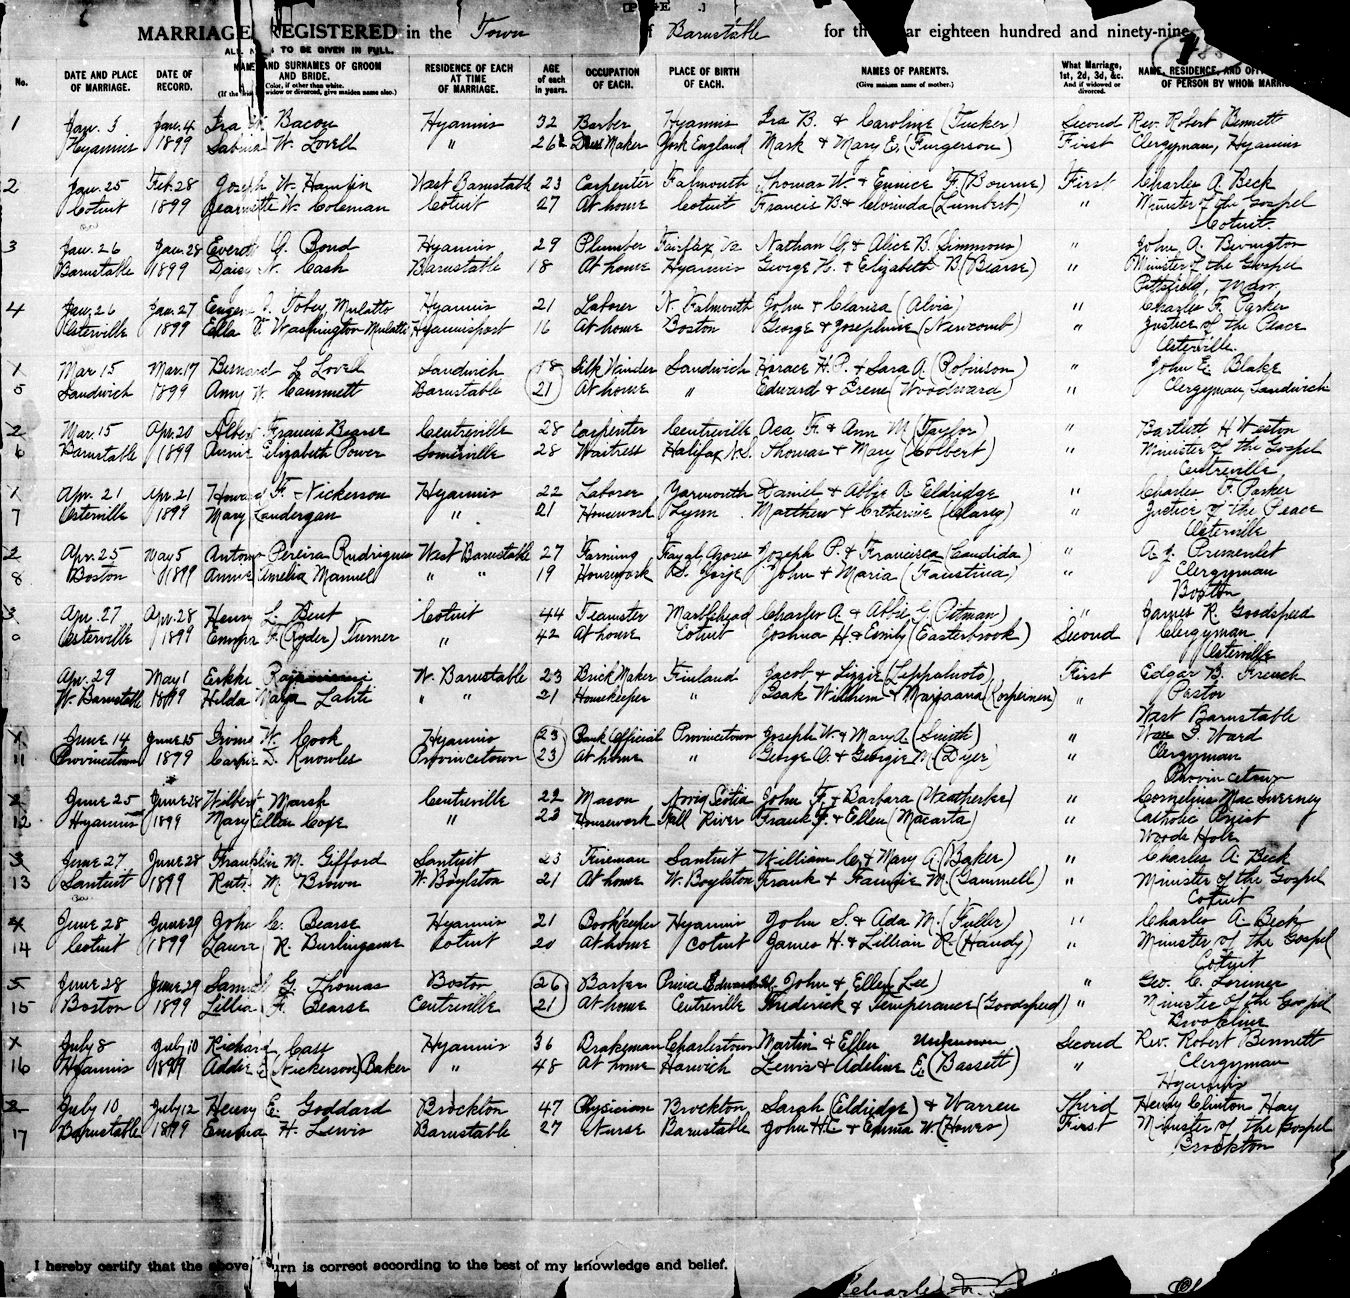 MARRIAGE REGISTERED in the Town of Barnstable for the ar eighteen hundred and ninety-nine
ALL TO BE GIVEN IN FULL.
No. DATE AND PLACE OF MARRIAGE. DATE OF RECORD. AND SURNAMES OF GROOM AND BRIDE. Color, if other than white. RESIDENCE OF EACH AT TIME OF MARRIAGE. AGE of each in years. OCCUPATION OF EACH. PLACE OF BIRTH OF EACH. NAMES OF PARENTS. (Give maiden name of mother.) What Marriage, 1st, 2d, 3d, &c. And if widowed or divorced. NAME, RESIDENCE, AND OF PERSON BY WHOM
1 Jan. Jan. 4 Ira Bacon Hyannis 32 Barber Hyannis Ira B. & Caroline (Tucker) Second Rev. Robert Bennett
Hyannis 1899 W. Lovell " 26 Dress Maker York England Mark & Mary E. (Furgerson) First Clergyman, Hyannis
2 Jan. 25 Feb. 28 Joseph W. Hamlin West Barnstable 23 Carpenter Falmouth Thomas W. & Eunice F. (Bourne) First Charles A. Beck
Cotuit 1899 Jeannette W. Coleman Cotuit 27 At home Cotuit Francis B. & (Lumbert) " Minister of the Gospel
Cotuit.
3 Jan. 26 Jan. 28 Everett G. Bond Hyannis 29 Plumber Fairfax Nathan G. & Alice B. (Simmons) " John A. Bevington
Barnstable 1899 Daisy N. Cash Barnstable 18 At home Hyannis George H. & Elizabeth B. (Bearse) " Minister of the Gospel
Pittsfield, Mass.
4 Jan. 26 Jan. 27 Eugen Tobey, Mulatto Hyannis 21 Laborer N. Falmouth John & Clarisa (Alvis) " Charles F. Parker
Osterville 1899 Ella V. Washington Mulatto Hyannisport 16 At home Boston George & Josephine (Newcomb) " Justice of the Peace
Osterville.
1 Mar 15 Mar. 17 Bernard L. Lovell Sandwich 18 Silk Winder Sandwich Horace H. P. & Sara A. (Robinson) " John E. Blake
5 Sandwich 1899 Amy W. Cammett Barnstable 21 At home " Edward & Irene (Woodward) " Clergyman, Sandwich
2 Mar. 15 Apr. 20 Albert Francis Bearse Centreville 28 Carpenter Centreville Asa F. & Ann M. (Taylor) " Bartlett H Weston
6 Barnstable 1899 Annie Elizabeth Power Somerville 28 Waitress Halifax N.S. Thomas & Mary (Colbert) " Minister of the Gospel
Centreville
1 Apr. 21 Apr. 21 Howard F. Nickerson Hyannis 22 Laborer Yarmouth Daniel & Abbie A. Eldridge " Charles F. Parker
7 Osterville 1899 Mary Landergan " 21 Housework Lynn Matthew & Catherine (Clary) " Justice of the Peace
Osterville
2 Apr. 25 May 5 Antone Pereira Rudrigues West Barnstable 27 Farming Fayal Azores Joseph P. & Francisca (Candida) " A. J.
8 Boston 1899 Annie Amelia Manuel " " 19 Housework St. Jorje John & Maria (Faustina) " Clergyman
Boston
3 Apr. 27 Apr. 28 Henry L. Bent Cotuit 44 Teamster Marblehead Charles A. & Abbie G. (Pitman) " James R. Goodspeed
Osterville 1899 Emma F. (Ryder) Turner " 42 At home Cotuit Joshua H. & Emily (Easterbrook) Second Clergyman
Osterville
Apr. 29 May 1 Erkke W. Barnstable 23 Brick Maker Finland Jacob & Lizzie (Leppaluoto) First Edgar B. French
W. Barnstable 1899 Hilda Maria Lahti " " 21 Housekeeper " Isak Wilhelm & Marjaana " Pastor
West Barnstable
1 June 14 June 15 Irving W. Cook Hyannis 23 Bank Official Provincetown Joseph W. & Mary A. (Smith) " Ward
11 Provincetown 1899 Carrie D. Knowles Provincetown 23 At home " George O. & Georgie M. (Dyer) " Clergyman
Provincetown
2 June 25 June 28 Wilbert Marsh Centreville 22 Mason Nova Scotia John F. & Barbara (Weatherbee) " Cornelius MacSweeney
12 Hyannis 1899 Mary Ellen Coxe " 23 Housework Fall River Frank J. & Ellen (Macarta) " Catholic Priest
Woods Hole
3 June 27 June 28 Franklin M. Gifford Santuit 23 Fireman Santuit William C. & Mary A. (Baker) " Charles A. Beck
13 Santuit 1899 Ruth M. Brown W. Boylston 21 At home W. Boylston Frank & Fannie M. (Gammell) " Minister of the Gospel
Cotuit
4 June 28 June 29 John C. Bearse Hyannis 21 Bookkeeper Hyannis John S. & Ada M. (Fuller) " Charles A. Beck
14 Cotuit 1899 Laura R. Burlingame Cotuit 20 At home Cotuit James H. & Lillian R. (Handy) " Minister of the Gospel
Cotuit
5 June 28 June 29 Samuel G. Thomas Boston 26 Barber Prince Edward Isl. John & Ellen (Lee) " Geo. C. Lorimer
15 Boston 1899 Lillian F. Bearse Centreville 21 At home Centreville Frederick & Temperance (Goodspeed) " Minister of the Gospel
Brookline
1 July 8 July 10 Richard Cass Hyannis 36 Brakeman Charlestown Martin & Ellen Unknown Second Rev. Robert Bennett
16 Hyannis 1899 Addie E. (Nickerson) Baker " 48 At home Harwich Lewis & Adeline E. (Bassett) " Clergyman
Hyannis
2 July 10 July 12 Henry E. Goddard Brockton 47 Physician Brockton Sarah (Eldridge) & Warren Third Henry Clinton Hay
17 Barnstable 1899 Emma H. Lewis Barnstable 27 Nurse Barnstable John H.C. & Emma W. (Howes) First Minister of the Gospel
Brockton
I hereby certify that the above urn is correct according to the best of my knowledge and belief.
Charles